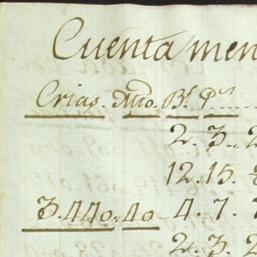 Cuenta men
Crias. Año. Bs. Ps.
2. 3. 2
12. 15.
3.440. 40 4. 7.
2. 3. 2